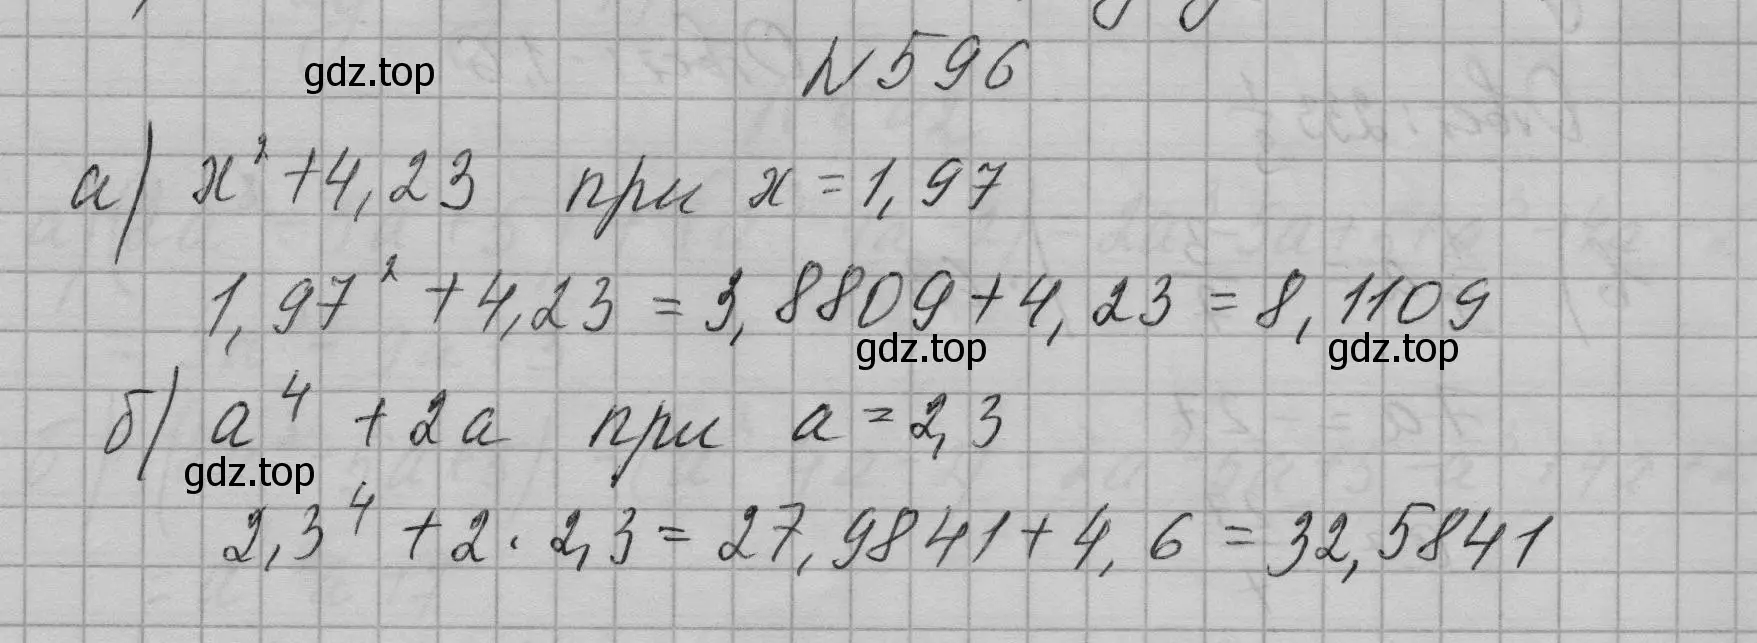 N 596
gdz.top
а) x² + 4,23 при x = 1,97
1,97² + 4,23 = 3,8809 + 4,23 = 8,1109
gdz.top gdz.top
б) a⁴ + 2a при a = 2,3
gdz.top
2,3⁴ + 2 · 2,3 = 27,9841 + 4,6 = 32,5841